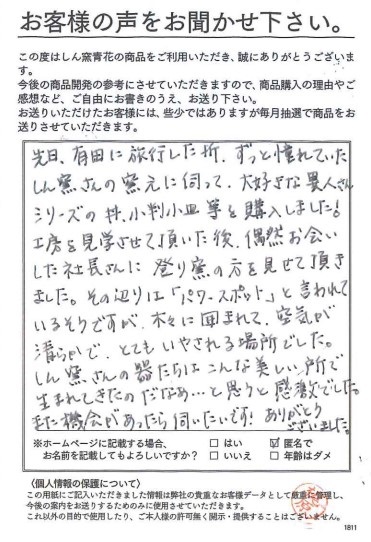 お客様の声をお聞かせ下さい。
この度はしん窯青花の商品をご利用いただき、誠にありがとうございま
す。
今後の商品開発の参考にさせていただきますので、商品購入の理由やご
感想など、ご自由にお書きのうえ、お送り下さい。
お送りいただけたお客様には、些少ではありますが毎月抽選で商品をお
送りさせていただきます。
先日、有田に旅行した折、ずっと憧れていた
しん窯さんの窯元に伺って、大好きな異人さん
シリーズの丼、小判小皿等を購入しました!
工房を見学させて頂いた後、偶然お会い
した社長さんに登り窯の方を見せて頂き
ました。その辺りは「パワースポット」と言われて
いるそうですが、木々に囲まれて、空気が
清らかで、とてもいやされる場所でした。
しん窯さんの器たちはこんな美しい所で
生まれてきたのだなあ…と思うと感激でした。
また機会があったら伺いたいです!ありがとう
ございました。
※ホームページに記載する場合、 □ はい ☑ 匿名で
お名前を記載してもよろしいですか? □ いいえ □ 年齢はダメ
〈個人情報の保護について〉
この用紙にご記入いただきました情報は弊社の貴重なお客様データとして厳重に管理し、
今後の案内をお送りするためのみに使用させていただきます。
これ以外の目的で使用したり、ご本人様の許可無く開示・提供することはございません。
1811